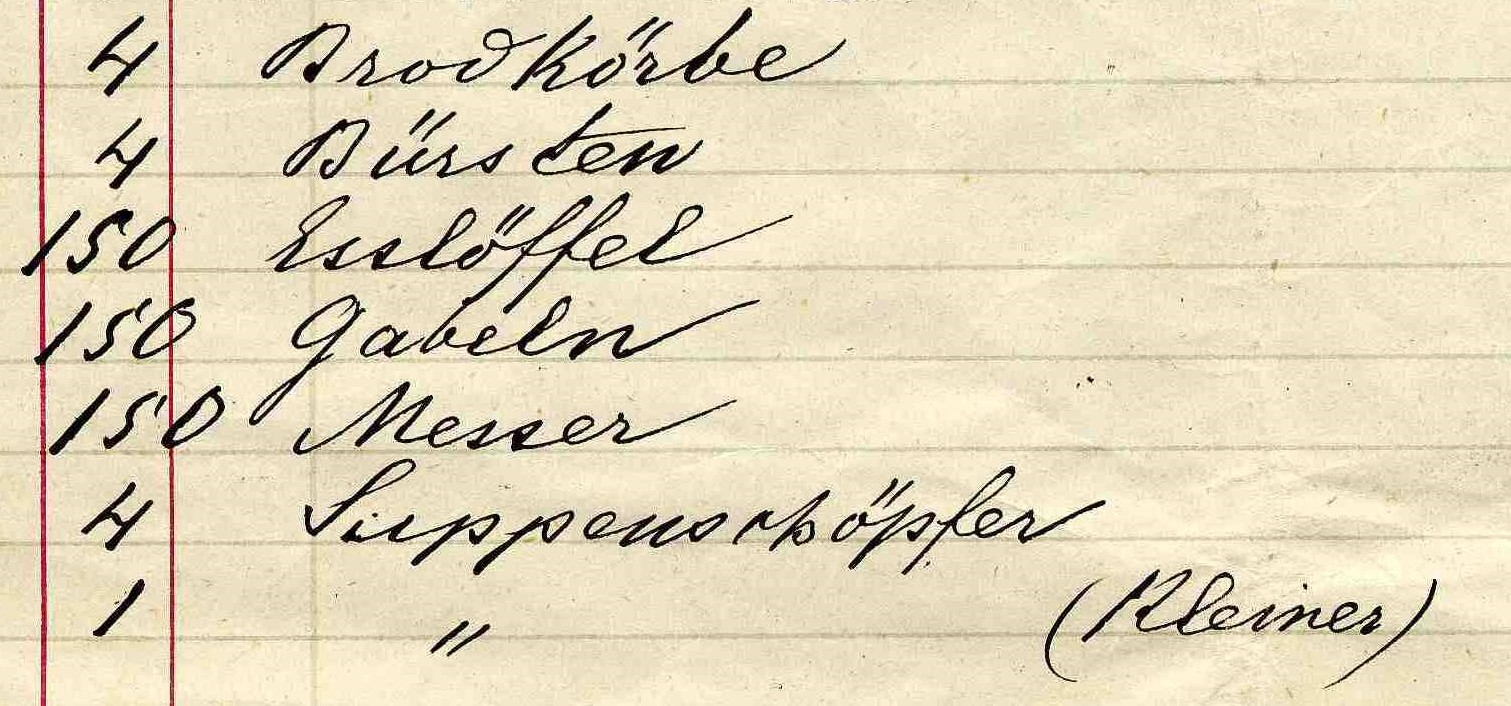 4 Brodkörbe
4 Bürsten
150 Esslöffel
150 Gabeln
150 Messer
4 Suppenschöpfer
1 " (Kleiner)